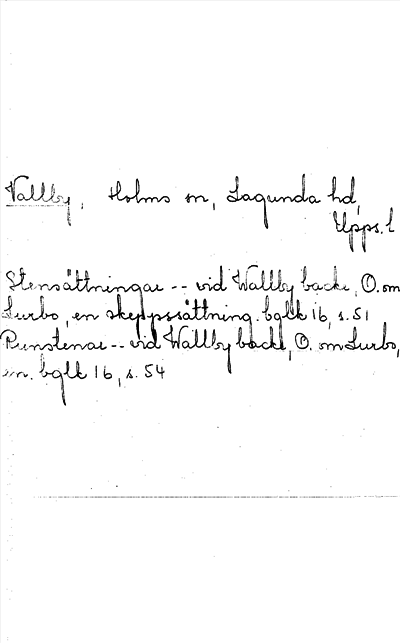 Vallby, Holms sn, Lagunda hd,
Upps. l
Stensättningar -- vid Wallby backe, O. om
Surbo, en skeppssättning. bglk 16, s. 51
Runstenar -- vid Wallby backe, O. om Surbo,
en. bglk 16, s. 54